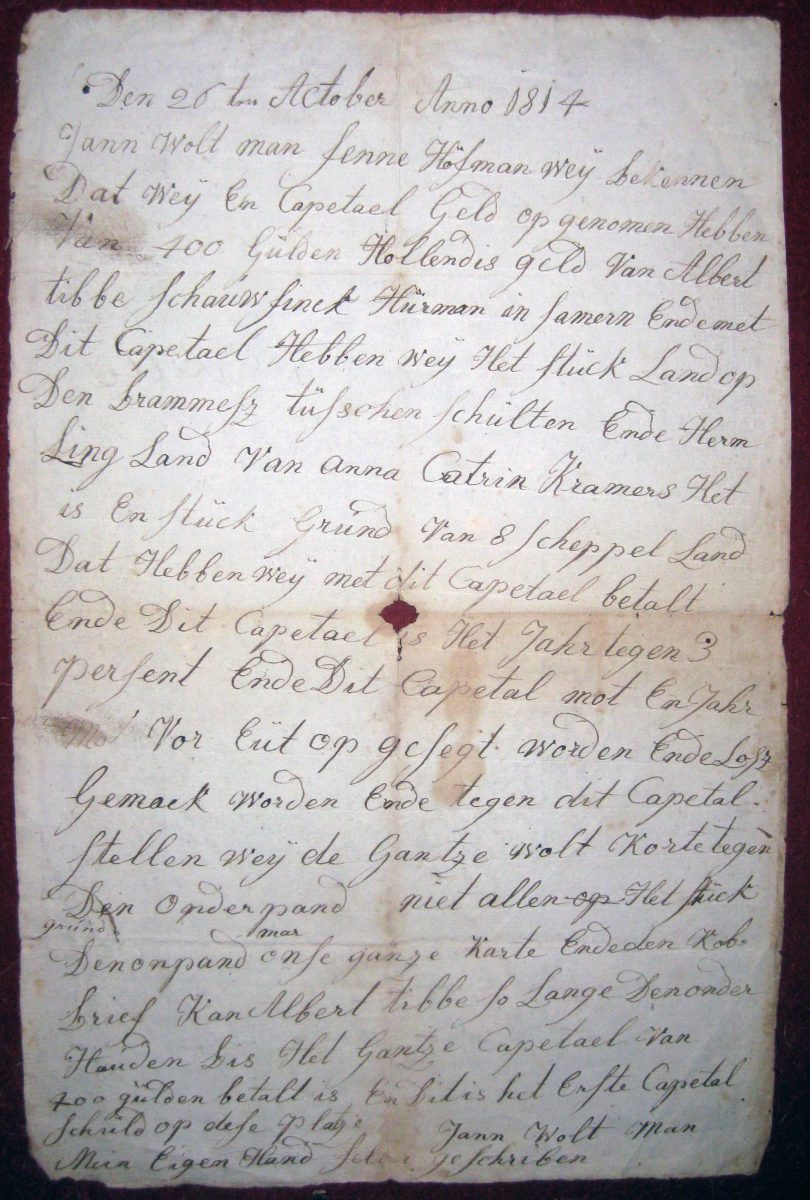 Den 26 tm October Anno 1814
Jann Wolt man senne Hösman weÿ bekennen
Dat weÿ En Capetael Geld op genomen Hebben
Van 400 Gülden Hollendis geld Van Albert
tibbe Schauwsinck Hürman in samern Endemet
Dit Capetael Hebben weÿ Het stück Land op
Den brammesz tüsschen schülten Ende Herm
Ling Land Van anna Catrin Kramers Het
is En stück Gründ Van 8 scheppel Land
Dat Hebben weÿ met dit Capetael betalt
Ende Dit Capetael is Het Jahr tegen 3
persent Ende Dit Capetal mot En Jahr
Vor Eüt op gesegt worden Ende Losz
Gemaek worden Ende tegen dit Capetal
stellen weÿ de Gantze wolt Korte tegen
Den onderpand niet allen op Het stück
gründ
mar
Denonpand onse gantze Karte Ende den Kob
brief Kan Albert tibbe so Lange Denonder
Hauden bis Het Gantze Capetael Van
400 gülden betalt is En Dit is het Erste Capetal
schuld op dese platze Jann Wolt Man
Mein Eigen Hand geschriben